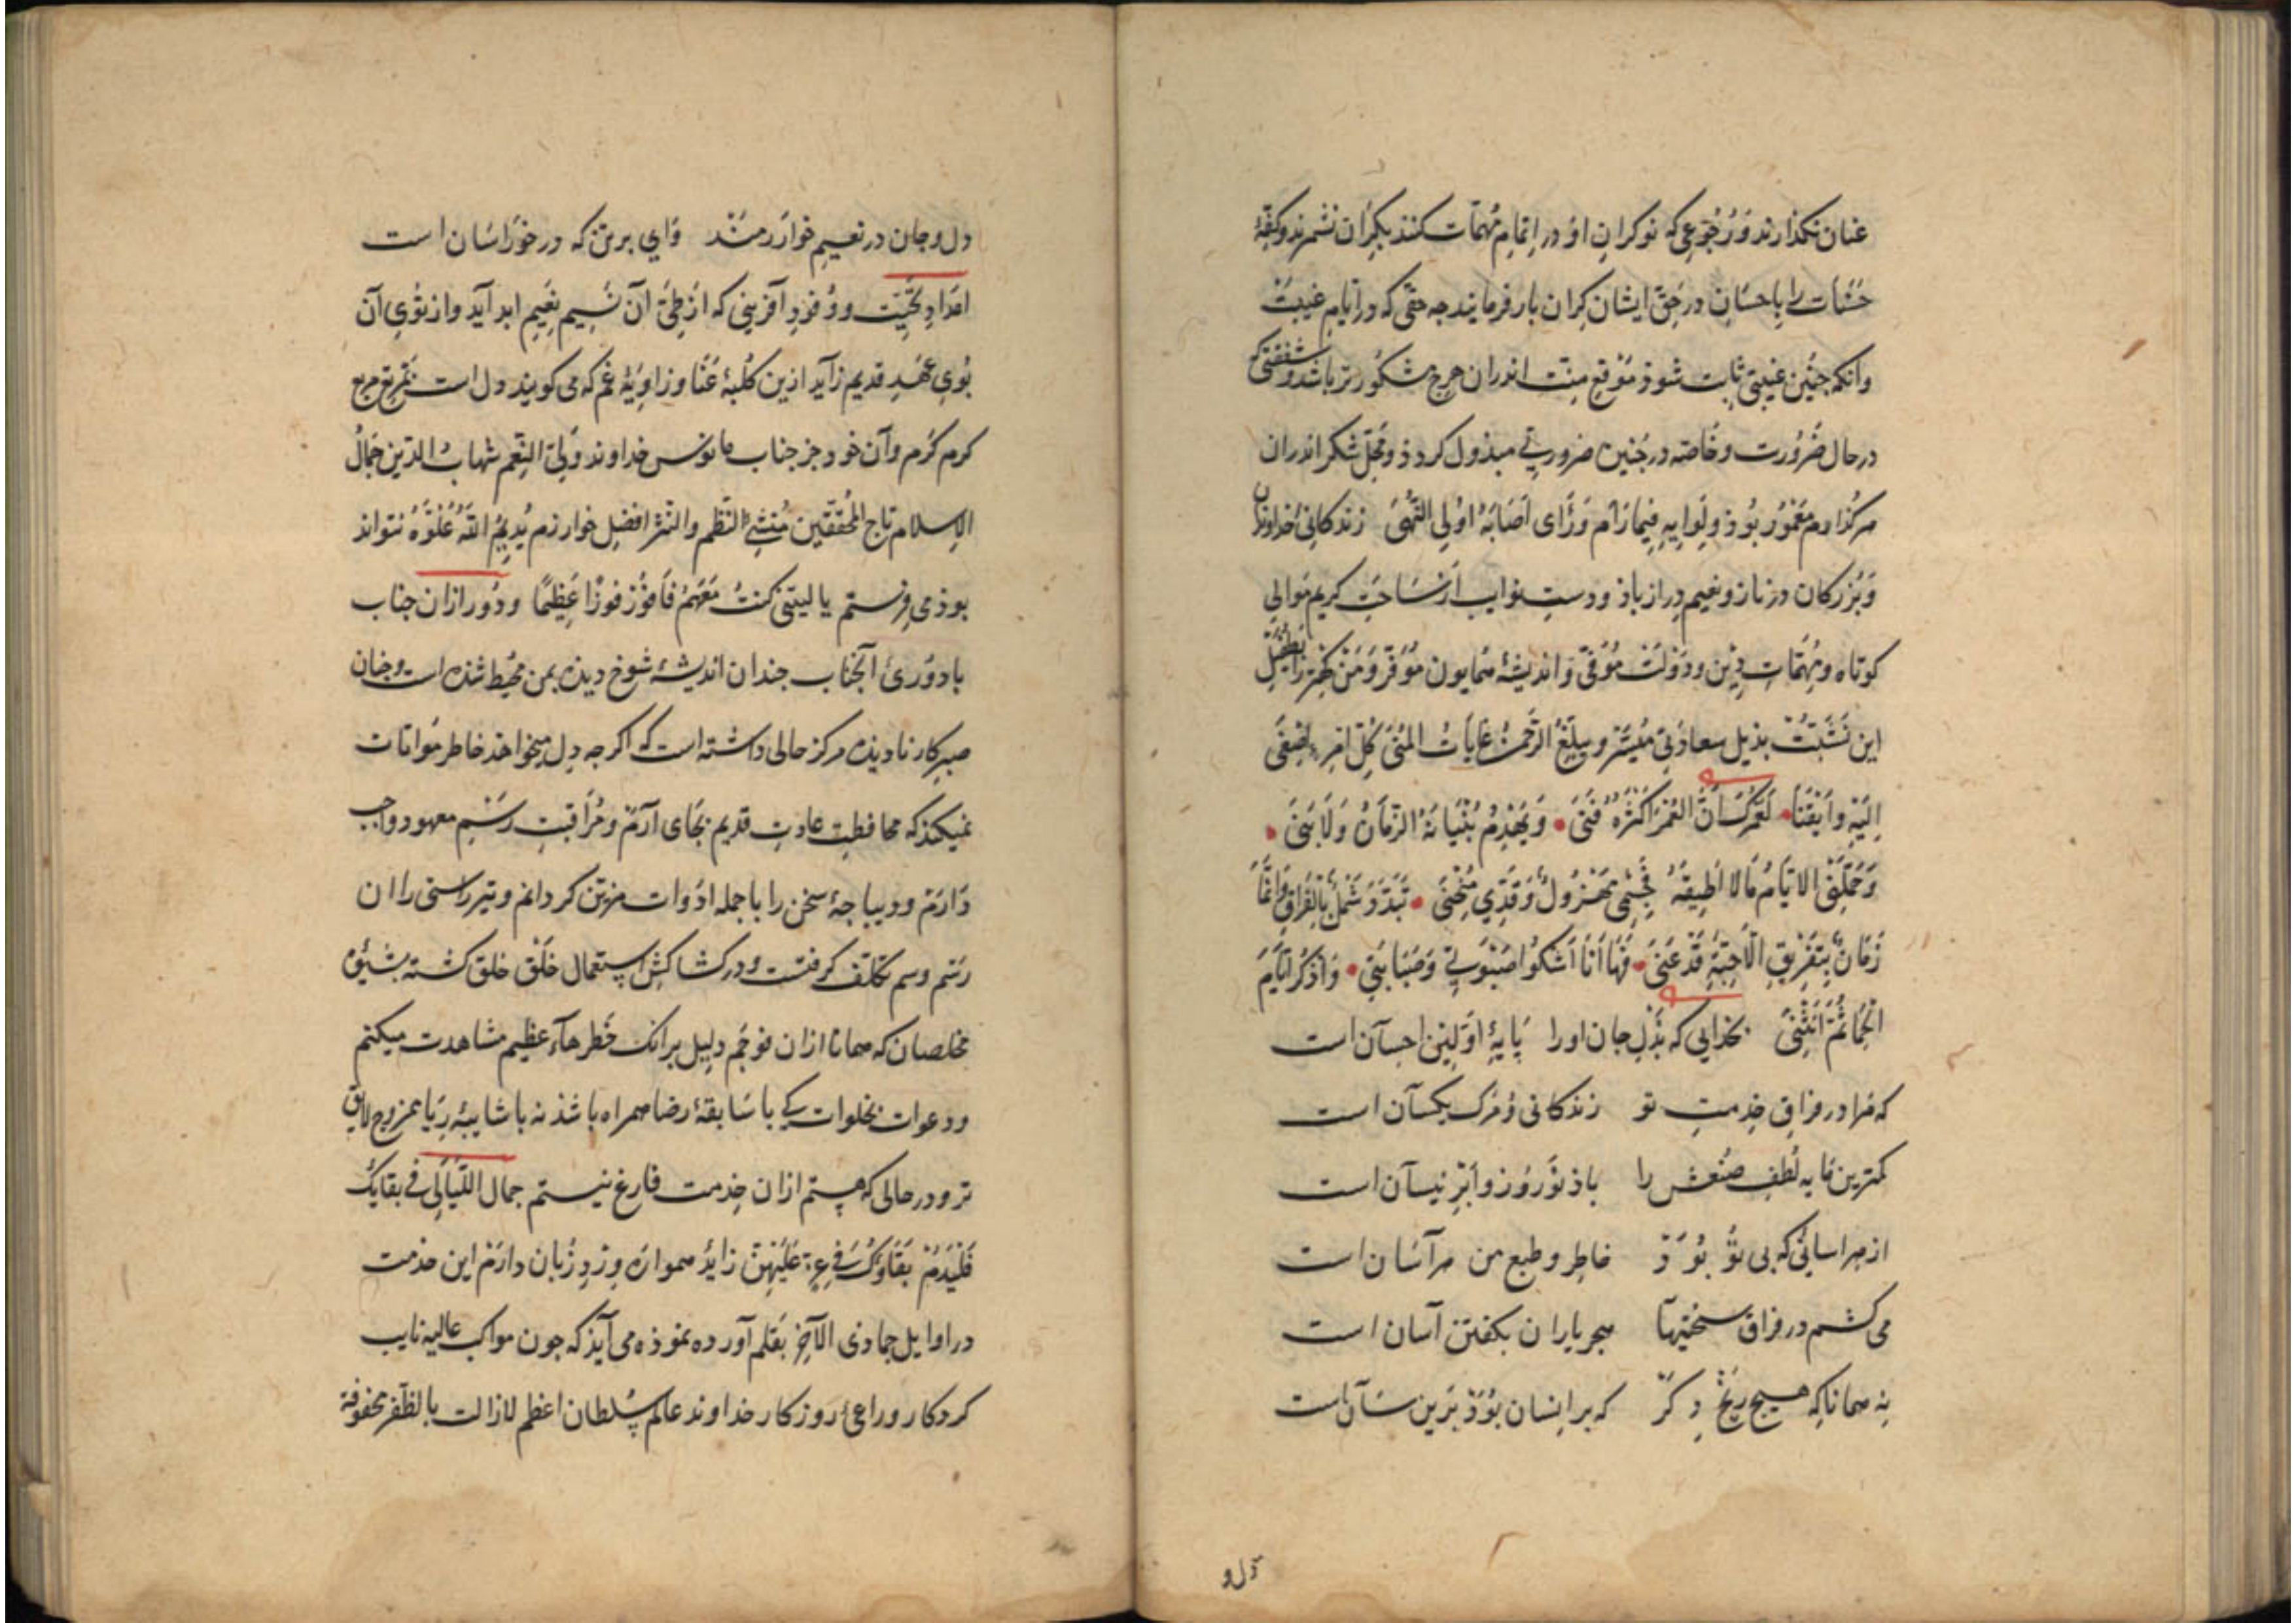 عنان نکذارند وَ رُجُوعی که نوکرانِ اوُ در اِتمامِ مُهمّات کنند بکِران نشمرند وکفّهٔ
حَسَنات را بِاحسَانِ درحَقّ ایشان کِران بار فرمایند جه حقّی که در ایّامِ غیبَتْ
وانکه جنین غیبتی ثابت شوذ مَوْقعِ مِنّت اندران هرج مشکُورتر باشد و شفقتی که
درحال ضَرُورت وخَاصّه در جُنین ضرورتی مبذول کردذ ومَحَلّ شکر اندران
هرکُدام مَعْمُور بُوذ وَلِوایِهِ فِیمَا رَام وَرَأی اَصَابَهُ اوُلِی النُّهیٰ زندکانیٔ خُداوندان
وَبُزرکان درناز ونعیم دراز باذ ودستِ نوایب اَزْ سَاحَتِ کریم مَوالی
کوتاه ومُهمّاتِ دِین ودَوْلَتْ مُوَفّی وَاندیشهٔ همایون مُوَفّر وَمَنْ کِهتر را بِطُفَیلِ
این تَشَبُّثْ بذیلِ سعادَتی مُیَسَّر ویبلّغُ الرّحمٰنُ غایَاتُ المُنیٰ کُلّ امرِءٍ اَضغیٰ
اِلَیْهِ وَاَیْقَنَا لَعَمْرُكَ اَنَّ العُمْرَ اَکْثَرُهُ فَنَیٰ وَیَهْدِمُ بُنْیَانَهُ الزَّمَانُ وَلَا بَنَیٰ
وَحَمّلَنِی الاَیّامُ مَا لَا اُطِیقُهُ فَجِسْمِی مَهْزُولٌ وَقَدِّی مُنْحَنَیٰ تَبَدَّدَ شَمْلِی بِالفِرَاقِ وَاِنَّمَا
زَمَانٌ بِتَفْرِیقِ الْاَحِبّةِ قَدْ عَنَیٰ فَهَا اَنَا اَشْکُوا صَبْوَتِی وَصَبَابَتِی وَاَذْکُرُ اَیَّامَ
الْحِمَا ثُمَّ اَنْثَنِیٰ بخذایی که بَذْلِ جان اورا پَایهٔ اوّلین احسآن است
که مَرا در فراقِ خِدمتِ تو زندکانی وُ مَرک یکسآن است
کمترین مَایه لُطفِ صُنعش را باذ نَوْرُوز وَاَبْرِ نیسآن است
از هراسانی که بی تُوْ بُوَدْ خاطِر وطبعِ من هرآسَان است
می کشم در فراق سختیهآ هجرِ یاران بکفتن آسان است
نِه همانا که هیچ رَنْجِ دِکَرْ که بر اِنسان بُوَدْ بَرین سَآن است
دل و
دل وجان در نعیمِ خوارزمند وَای بر تن که در خوراسَان است
امَدادِ تحیّت ووُفُودِ آفرینی که اَزْ طَیّ آن نَسِیمِ نعِیمِ ابد آید واز تُوی آن
بُوی عَهْدِ قدیم زآید ازین کلُبهٔ عَنَا وزاوِیهٔ غم که می کویند دل است
کرم کَرم وآن خود جز جناب مانوس خداوند وَلِیّ النِّعَم شهابُ الدّین جَمَالُ
الاِسلام تاج المُحقّقین مُنشِیُٔ النّظم والنّثر افضلِ خوارزم یُدِیمُ اللّهُ عُلُوَّهُ نتواند
بوذ می فرستم یا لیتنی کنتُ مَعَهُمْ فَاَفوُزَ فَوْزًا عَظِیمًا ودُور ازان جناب
بادوُریٔ آنجناب جندان اندیشهٔ شوخ دیده بمن مُحِیط شده است وجنان
صبرِ کارنادیده مرکز خالی داشته است که اکرجه دِل میخواهد خاطر مُواتات
نمیکند که محافظتِ عادتِ قدیم بجَای آرَمْ ومُراقبتِ رَسْمِ معهود واجب
دَارَمْ ودیباجهٔ سخن را باجمله ادَوات مزیّن کردانم وتیرِ راستی را ان
رَسْم وسم تکلّف کرفتست ودر کشاکشِ استعمال خَلْق خلق کشته بشیوهٔ
مخلصان که همانا ازان فوجَمْ دلِیل برانک خَطرهآء عظیم مشاهدت میکنم
ودعوات بخلوات کی باسَابقهٔ رضا همراه باشذ نه باشایبهٔ رِیَا ممزوج لایق
تر ودر حالی که هستم ازان خِدمت فارغ نیستم جمال اللّیَالِی فی بقایِكَ
فَلْیَدُمْ بَقَاوُكَ فِی عِزٍّ عَلَیْهِنّ زایدُ همواره وِرْدِ زُبان دارَمْ این خدمت
در اوایل جمادی الآخِر بقَلم آورده نموذه می آیذ که جون مواکبِ عالیه نایبِ
کردکار وراعیٔ روزکار خداوند عالم سُلطان اعظم لازالت بالظفر محفوفة